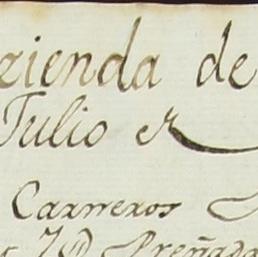 zienda de
Julio er
Carreros
Preñada